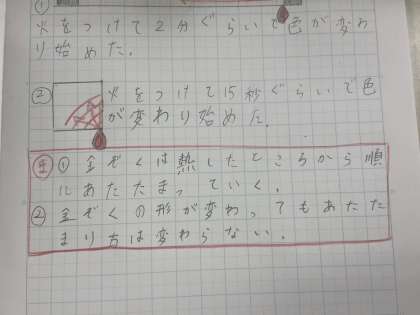 ①
火をつけて2分ぐらいで色が変わ
り始めた。
② 火をつけて15秒ぐらいで色
が変わり始めた。
ま ① 金ぞくは熱したところから順
にあたたまっていく。
② 金ぞくの形が変わってもあたた
まり方は変わらない。